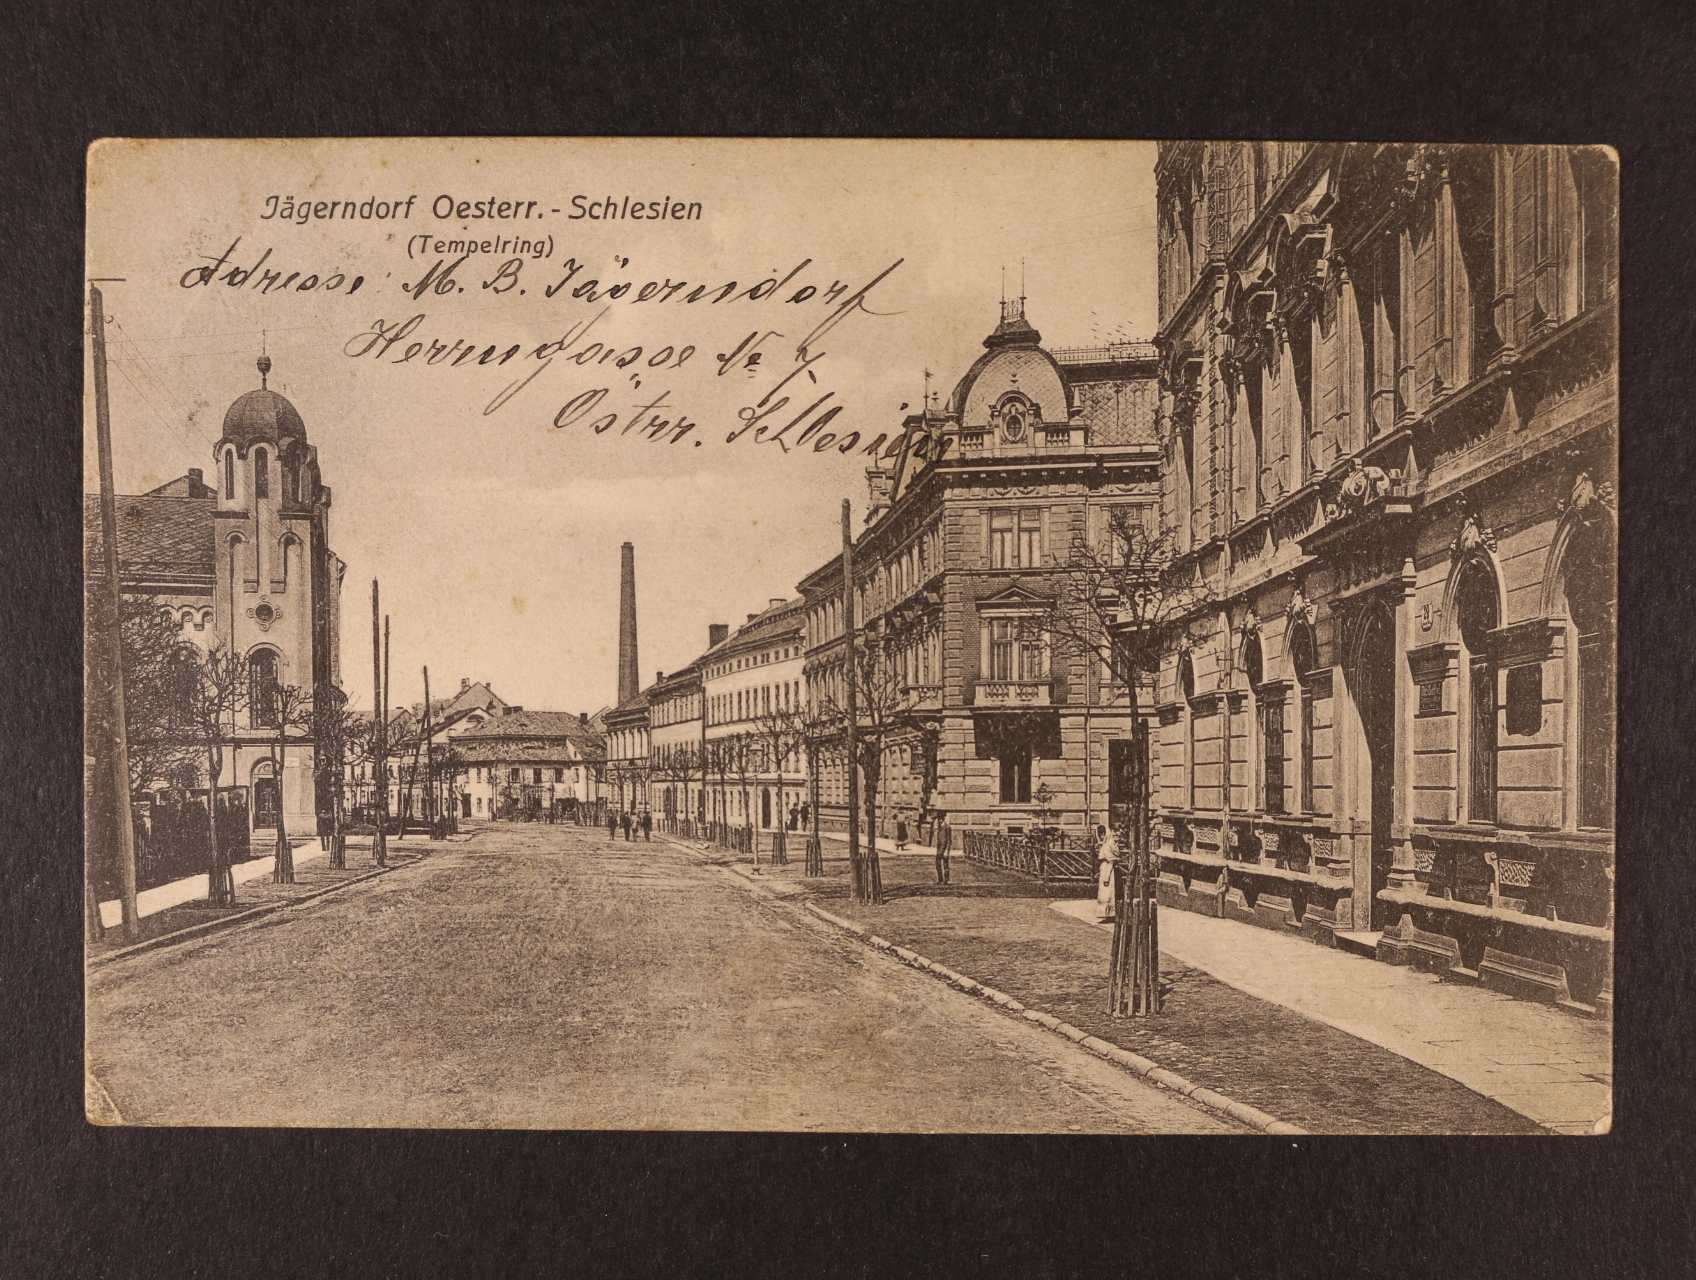 Jägerndorf Oesterr.-Schlesien
(Tempelring)
Adresse: M. B. Jägerndorf
Herrngasse No 7
Östrr. Schlesien